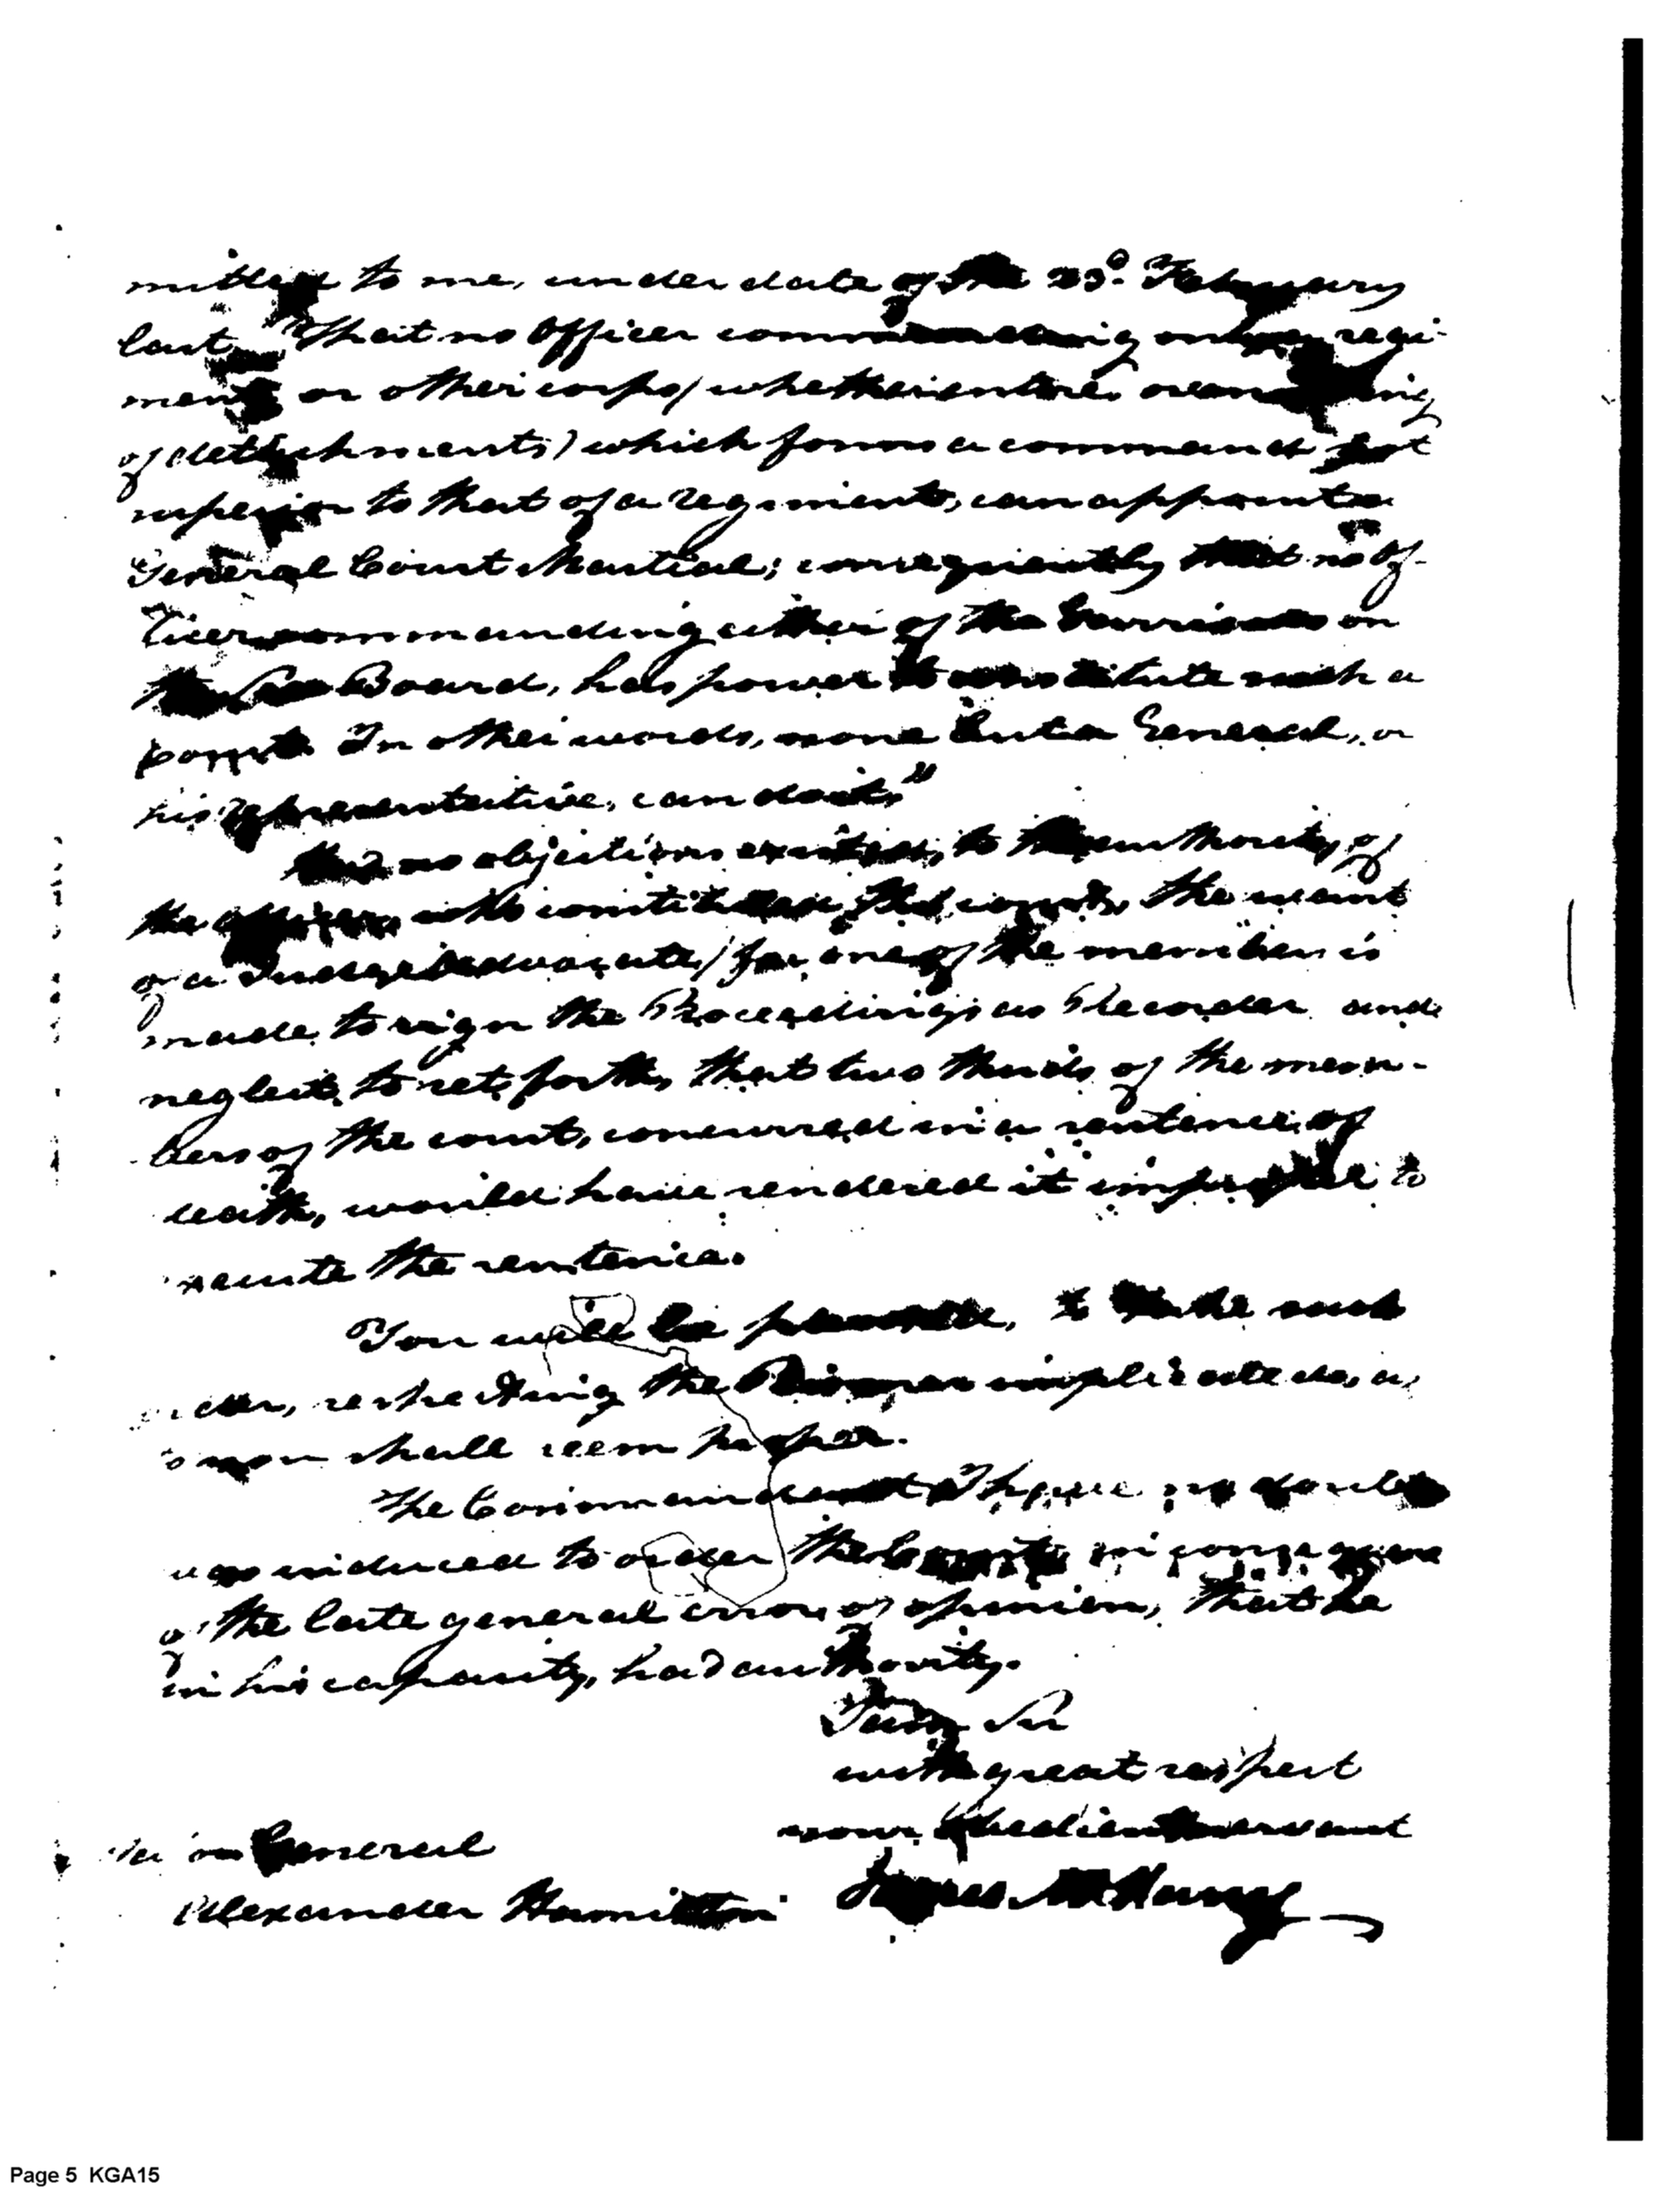 mitted to me, under date of the 23d. February
last, "That no Officer commanding only a regi-
ment or other corps (whether entire or consisting
of detachments) which forms a command not
superior to that of a regiment, can appoint a
General Court Martial; consequently that no Of-
ficer commanding either of the Garrisons on
the Sea Board, has power to constitute such a
court. In other words, none but a General, or
his representative, can do it."
Had no objections existed, to the authority of
the officer, who constituted the court, the want
of a Judge Advocate, (for one of the members is
made to sign the Proceedings as Recorder and
neglect to set forth, that two thirds of the mem-
bers of the court, concurred in a sentence of
death, would have rendered it improper to
xecute the sentence.
You will be pleased, to take such
order, respecting the Prisoner implicated, as,
to you shall seem proper.
The Commandant I have no doubt
was induced to order the Court in consequence
of the late general error of opinion, that he
in his capacity, had authority.
I am Sir
with great respect
your obedient servant
James McHenry
General
Alexander Hamilton
Page 5 KGA15